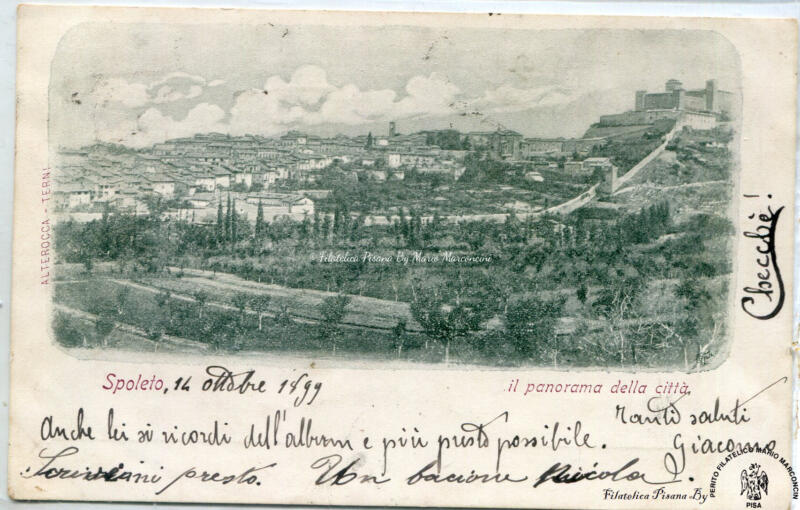 ALTEROCCA - TERNI
Filatelica Pisana By Mario Marconcini
Checchè!
Spoleto, 14 ottobre 1899
il panorama della città.
Anche lei si ricordi dell'album e più presto possibile.
Tanti saluti
Giacomo
Scrivimi presto. Un bacione
Filatelica Pisana By
PERITO FILATELICO MARIO MARCONCINI
PISA